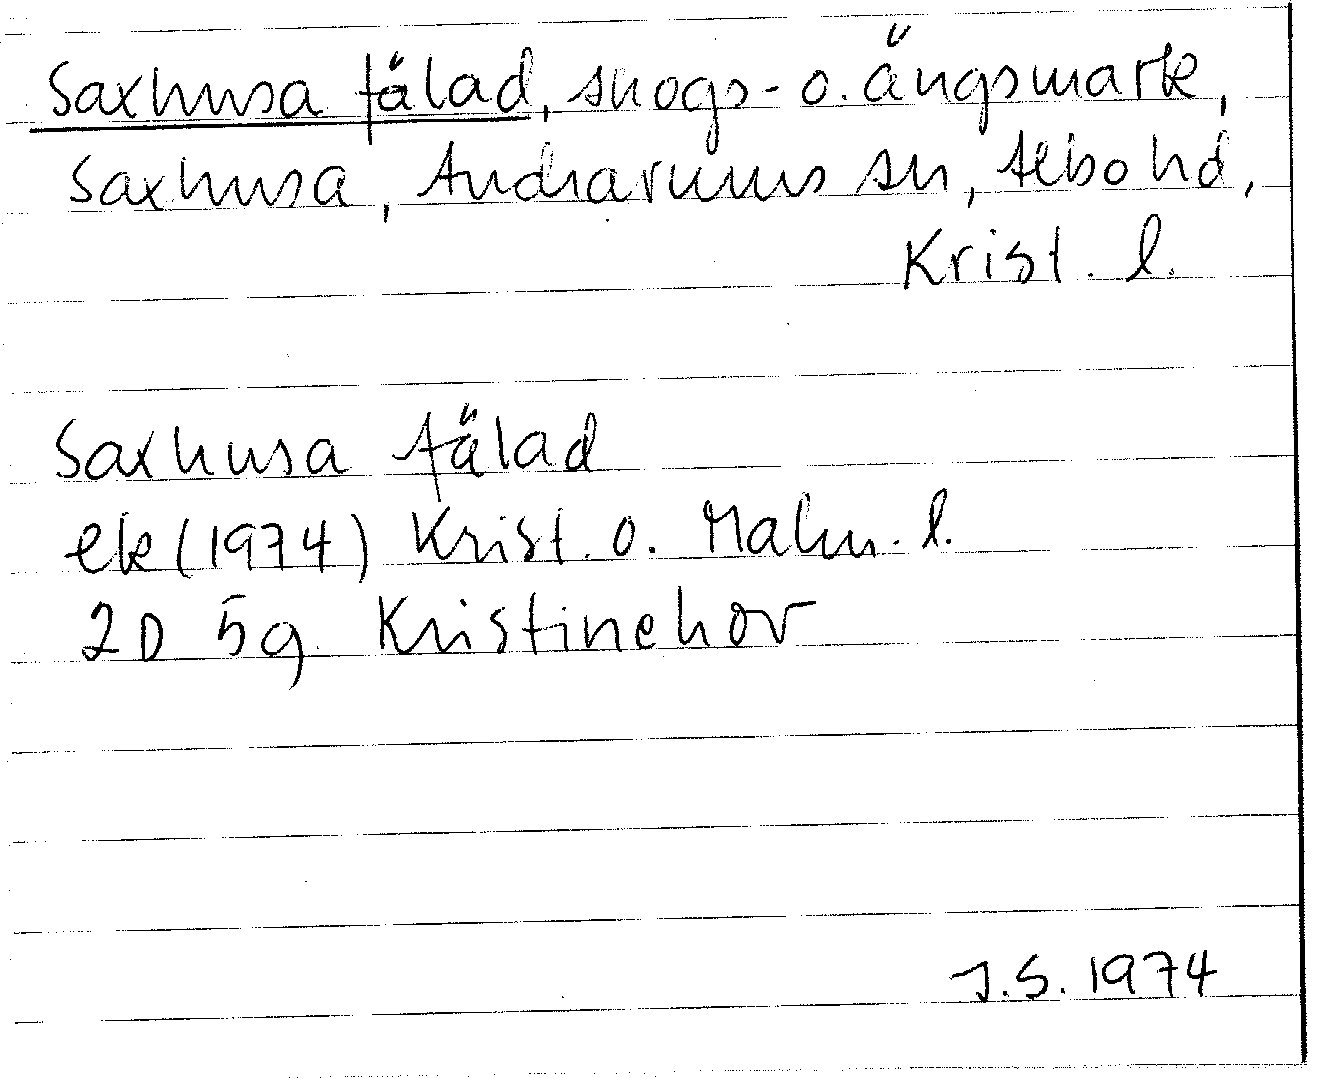 Saxhusa fälad, skogs- o. ängsmark,
Saxhusa, Andrarums sn, Albo hd,
Krist. l.
Saxhusa fälad
ek (1974) Krist. o. Malm. l.
2D 5g Kristinehov
J.S. 1974